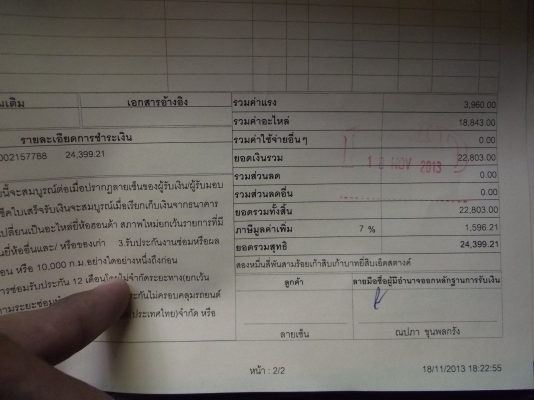 มเติม
เอกสารอ้างอิง
รายละเอียดการชำระเงิน
002157788 24,399.21
นี้จะสมบูรณ์ต่อเมื่อปรากฏลายเซ็นของผู้รับเงิน/ผู้รับมอบ
เช็คใบเสร็จรับเงินจะสมบูรณ์เมื่อเรียกเก็บเงินจากธนาคาร
เปลี่ยนเป็นอะไหล่ยี่ห้อฮอนด้า สภาพใหม่ยกเว้นรายการที่มี
ยี่ห้ออื่นและ/ หรือของเก่า 3.รับประกันงานซ่อมหรือผล
อน หรือ 10,000 ก.ม.อย่างใดอย่างหนึ่งถึงก่อน
การซ่อมรับประกัน 12 เดือนโดยไม่จำกัดระยะทาง(ยกเว้น
ประกันไม่ครอบคลุมรถยนต์
(ประเทศไทย)จำกัด หรือ
รวมค่าแรง 3,960.00
รวมค่าอะไหล่ 18,843.00
รวมค่าใช้จ่ายอื่นๆ 0.00
ยอดเงินรวม 22,803.00
รวมส่วนลด 0.00
รวมส่วนลดอื่น 0.00
ยอดรวมทั้งสิ้น 22,803.00
ภาษีมูลค่าเพิ่ม 7 % 1,596.21
ยอดรวมสุทธิ 24,399.21
NOV 2013
สองหมื่นสี่พันสามร้อยเก้าสิบเก้าบาทยี่สิบเอ็ดสตางค์
ลูกค้า
ลายมือชื่อผู้มีอำนาจออกหลักฐานการรับเงิน
ลายเซ็น
ณปภา ขุนพลกรัง
หน้า : 2/2
18/11/2013 18:22:55